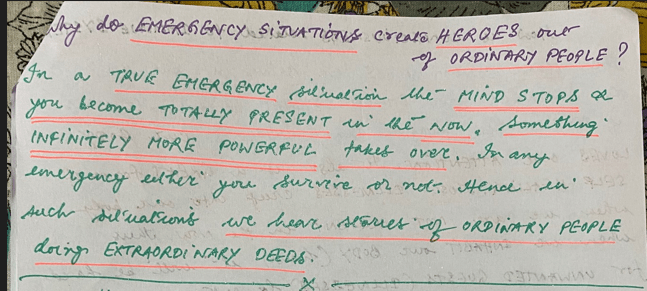 Why do EMERGENCY SITUATIONS create HEROES out
of ORDINARY PEOPLE?
In a TRUE EMERGENCY situation the MIND STOPS &
you become TOTALLY PRESENT in the NOW. Something
INFINITELY MORE POWERFUL takes over. In any
emergency either you survive or not. Hence in
such situations we hear stories of ORDINARY PEOPLE
doing EXTRAORDINARY DEEDS.
x